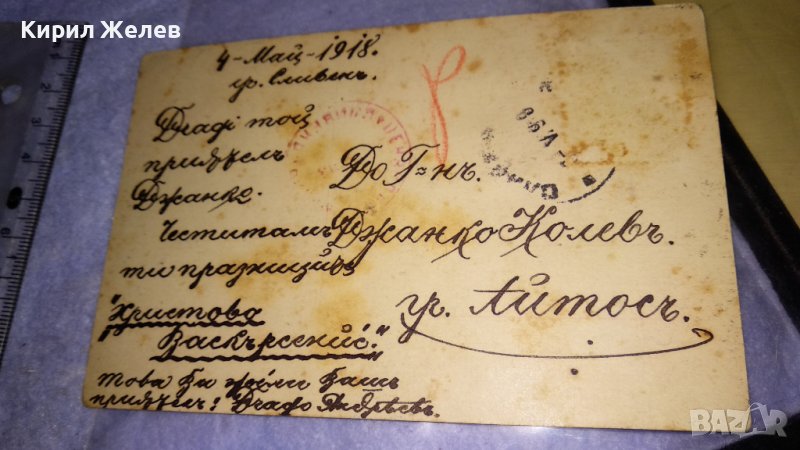 Кирил Желев
4-Май-1918.
гр. Сливенъ.
той
приятель
Джанко.
Честитамъ
ти празницитѣ
"Христова
Васкърсение."
това Ви желае Вашъ
приятель: Андрѣевъ.
До Г-нъ.
Джанко Колевъ.
гр. Айтосъ.
BAZAR